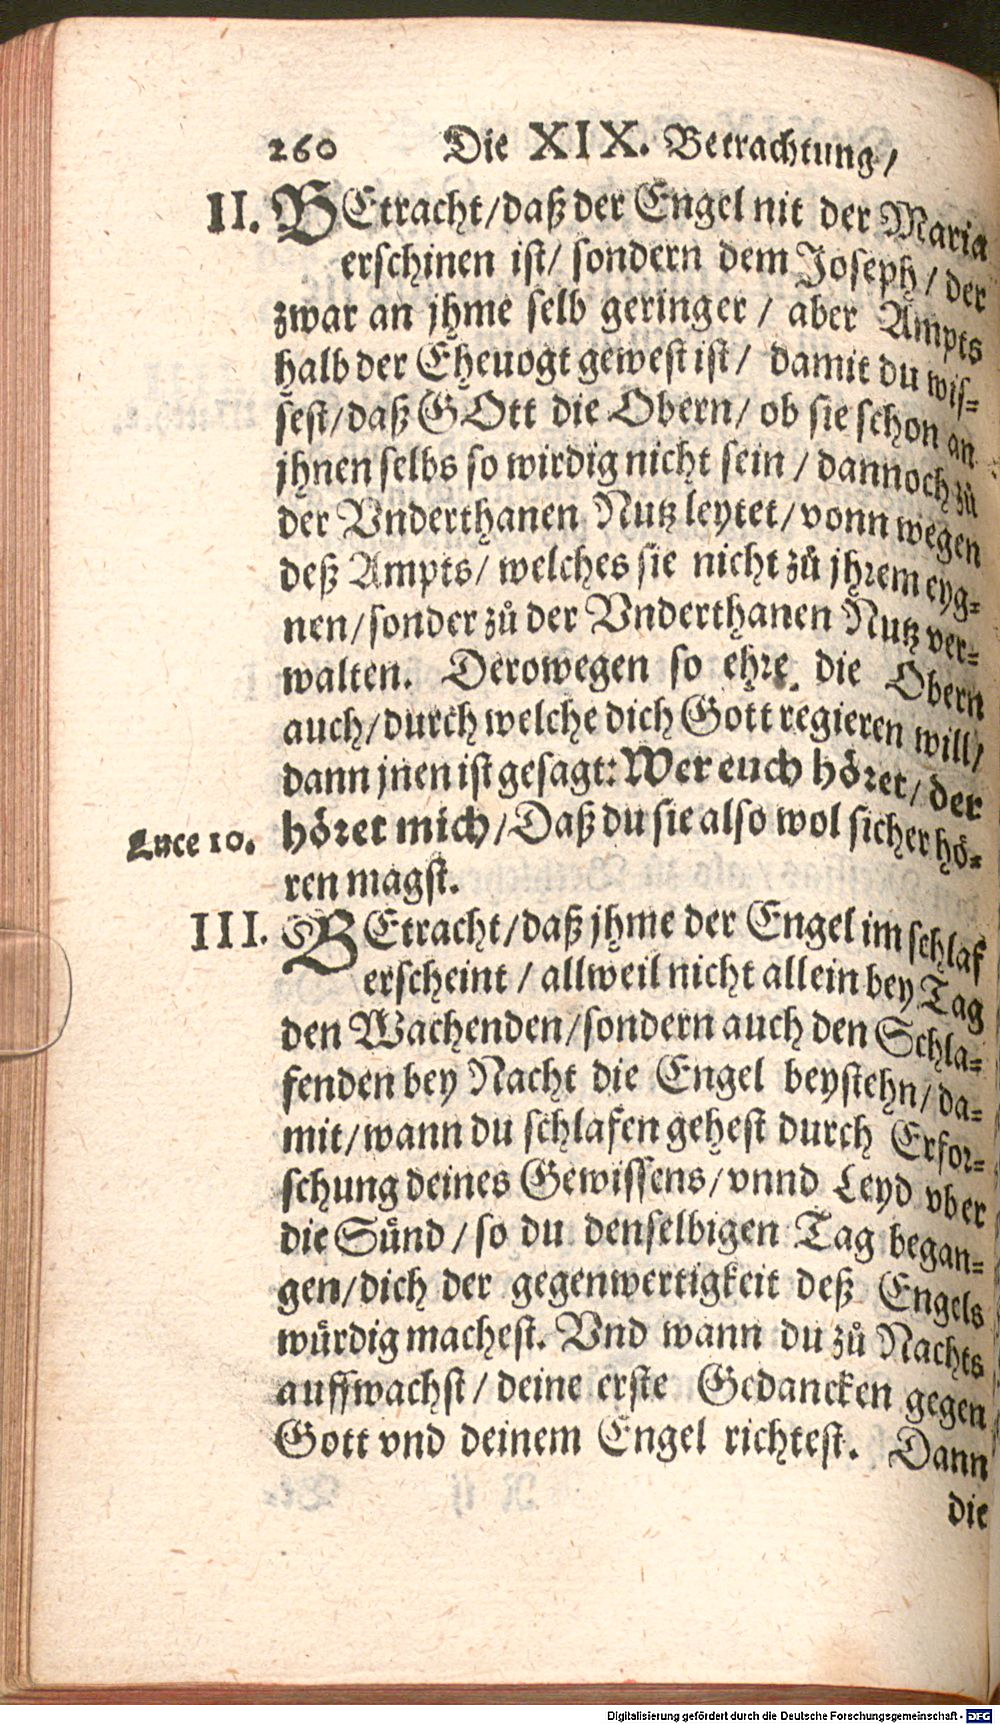 260 Die XIX. Betrachtung/
II. BEtracht/daß der Engel nit der Maria
erschinen ist/ sondern dem Joseph/ der
zwar an jhme selb geringer / aber Ampts
halb der Eheuogt gewest ist/ damit du wis-
sest/daß GOtt die Obern/ ob sie schon an
jhnen selbs so wirdig nicht sein / dannoch zů
der Vnderthanen Nutz leytet/ vonn wegen
deß Ampts/ welches sie nicht zů jhrem eyg-
nen/sonder zů der Vnderthanen Nutz ver-
walten. Derowegen so ehre die Obern
auch/durch welche dich Gott regieren will/
dann jnen ist gesagt: Wer euch höret/ der
Luce 10. höret mich/Daß du sie also wol sicher hö-
ren magst.
III. BEtracht/daß jhme der Engel im schlaf
erscheint / allweil nicht allein bey Tag
den Wachenden/sondern auch den Schla-
fenden bey Nacht die Engel beystehn/ da-
mit/wann du schlafen gehest durch Erfor-
schung deines Gewissens/vnnd Leyd vber
die Sünd / so du denselbigen Tag began-
gen/dich der gegenwertigkeit deß Engels
würdig machest. Vnd wann du zů Nachts
auffwachst/ deine erste Gedancken gegen
Gott vnd deinem Engel richtest. Dann
die
Digitalisierung gefördert durch die Deutsche Forschungsgemeinschaft - DFG